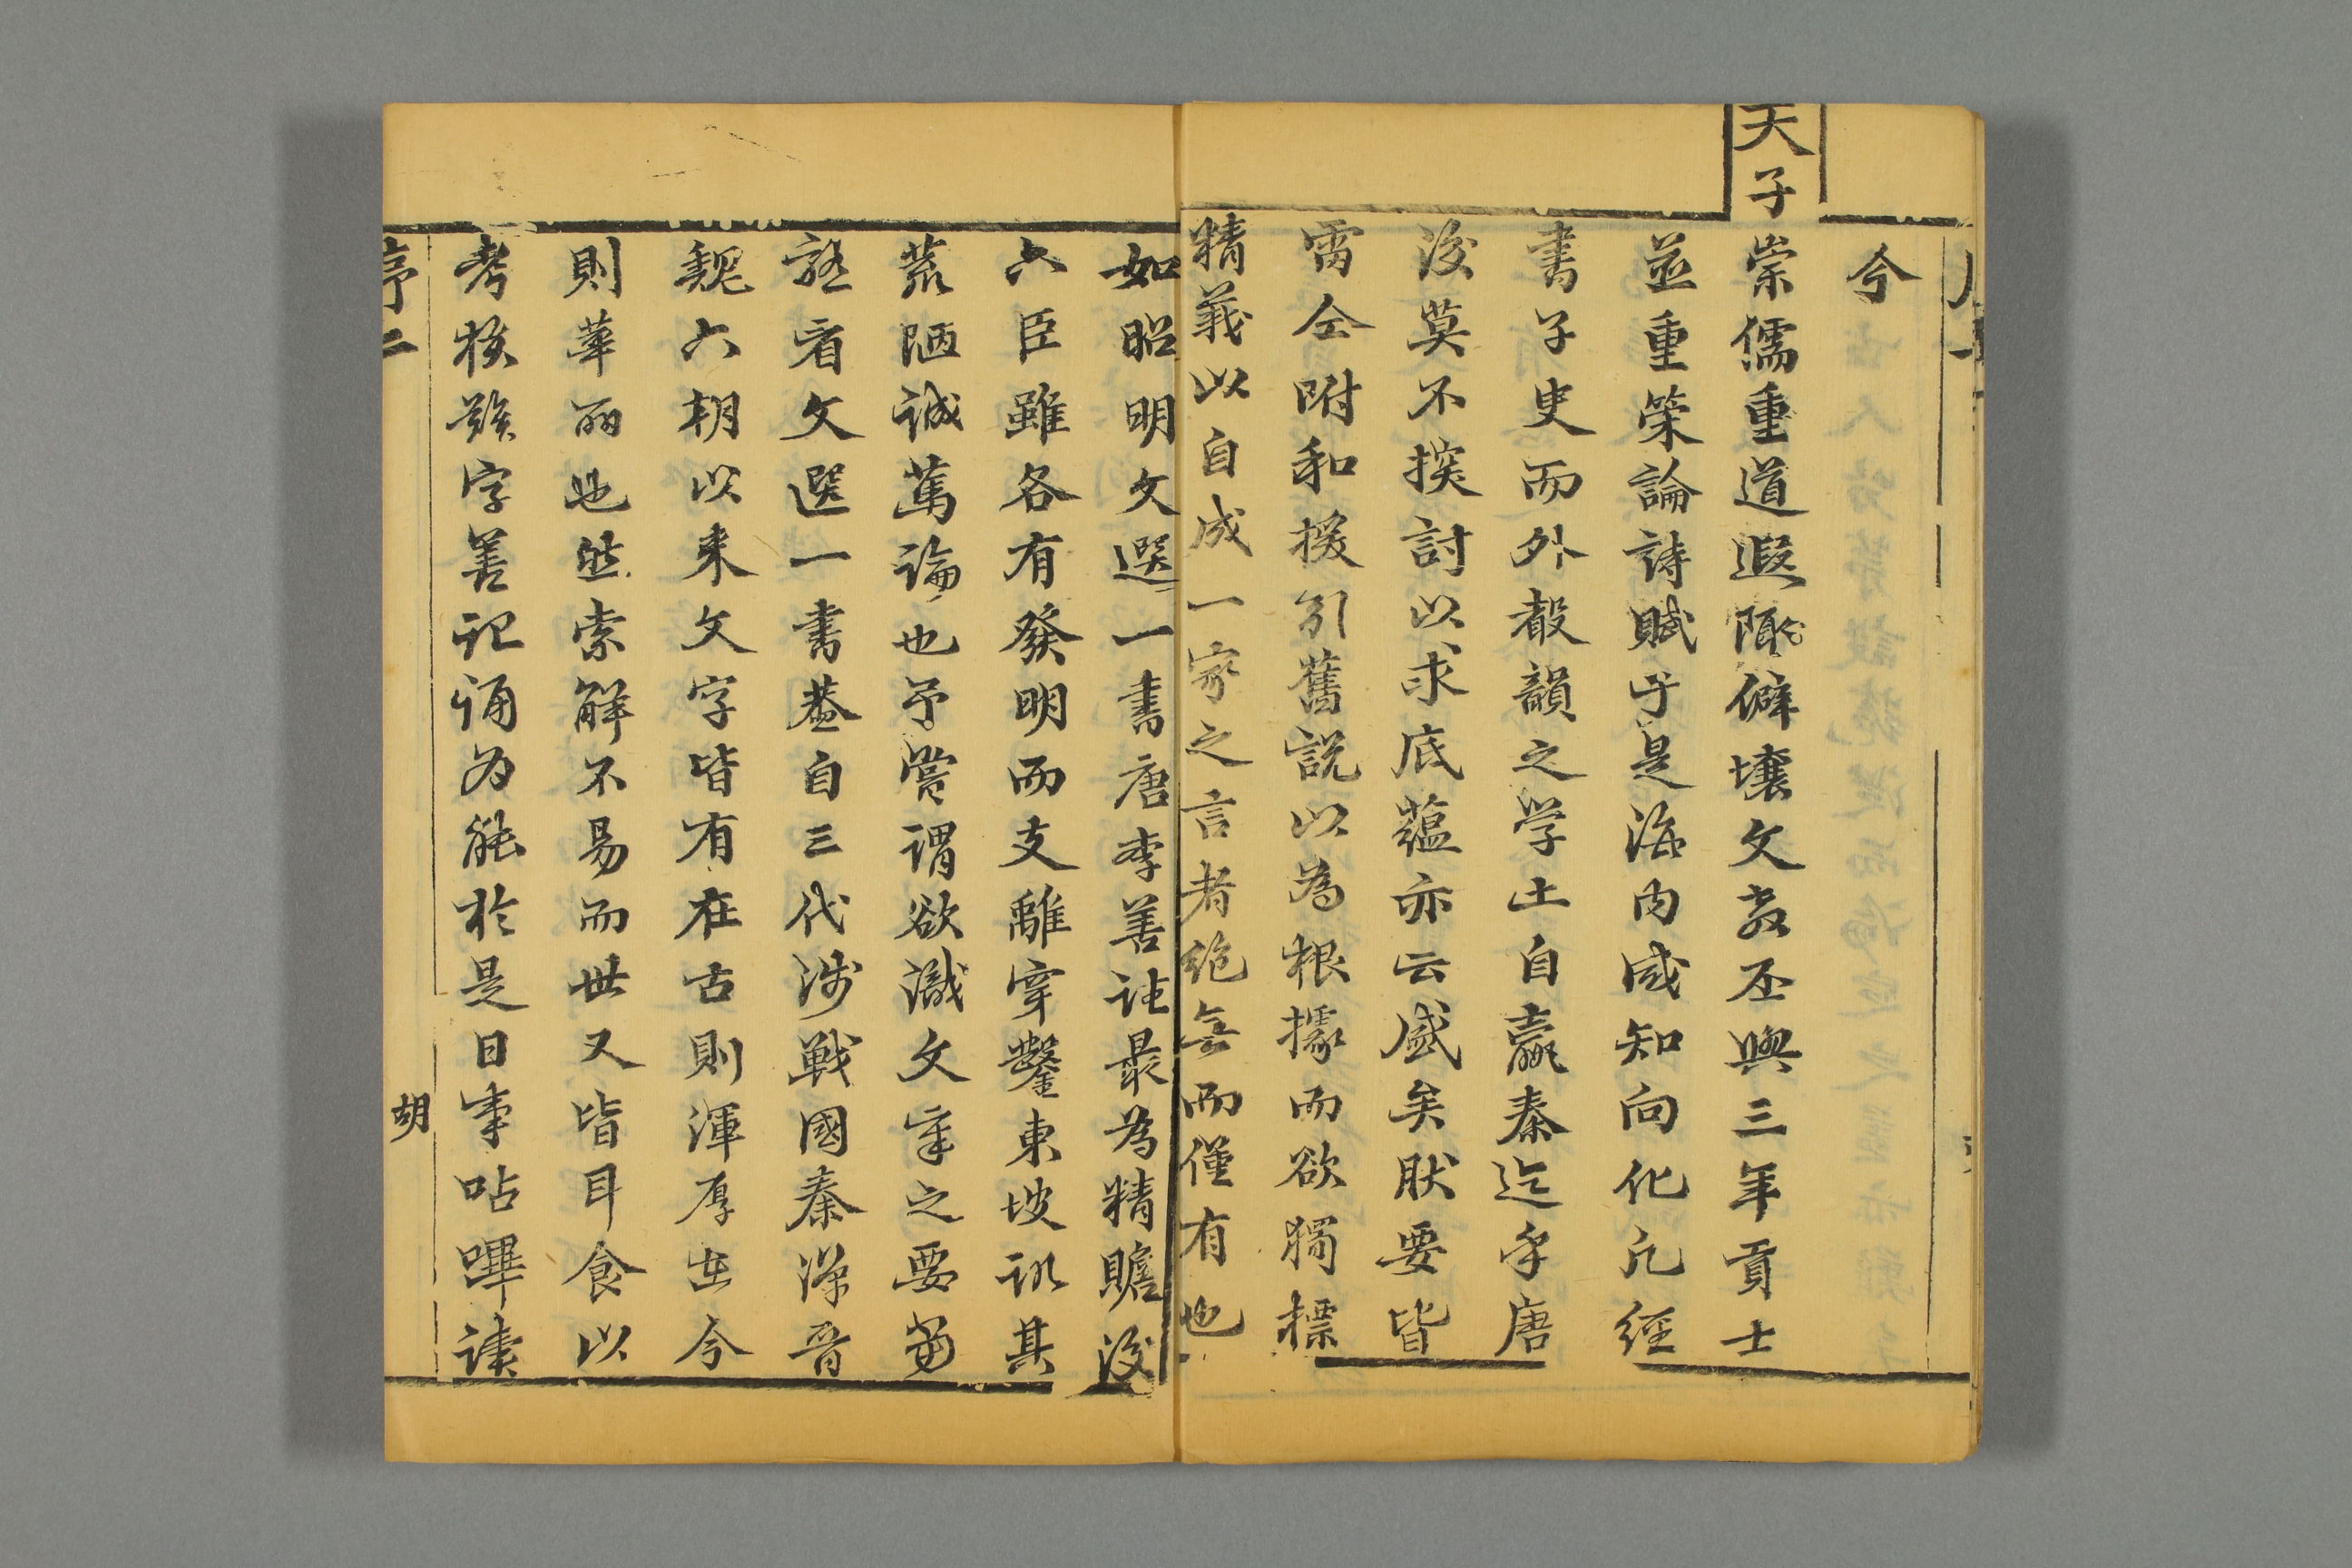 今
天子崇儒重道遐陬僻壤文教丕興三年貢士
並重策論詩賦于是海内咸知向化凡經
書子史而外聲韻之学土自嬴秦迄乎唐
後莫不探討以求底蘊亦云盛矣肰要皆
雷仝附和援引舊説以為根據而欲獨標
精義以自成一家之言者絶無而僅有也
如昭明文選一書唐李善註最為精贍後
六臣雖各有發明而支離穿鑿東坡訊其
荒陋誠篤論也予嘗謂欲識文章之要當
熟看文選一書葢自三代涉戰國秦漢晉
魏六朝以来文字皆有在古則渾厚在今
則華丽也然索解不易而世又皆耳食以
考核難字善記誦为能於是日事呫嗶读
序二
胡